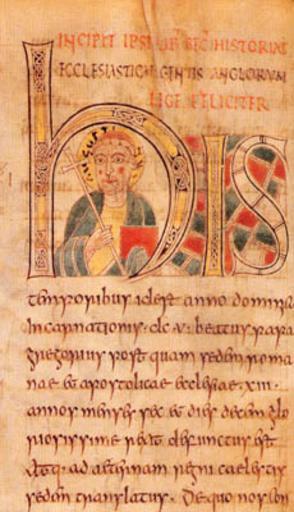 INCIPIT HISTORIAE
ECCLESIASTICAE GENTIS ANGLORUM
LEGE FELICITER
AUGUSTI
HIS
temporibus idest anno
Incarnationis · dc · v · beatus papa
gregorius post quam sedem roma
nae et apostolicae ecclesiae · xiii ·
annos menses sex et dies decem glo
riosissime rexit defunctus est
Atq· ad aeternam regni caelestis
sedem translatus. De quo nos con